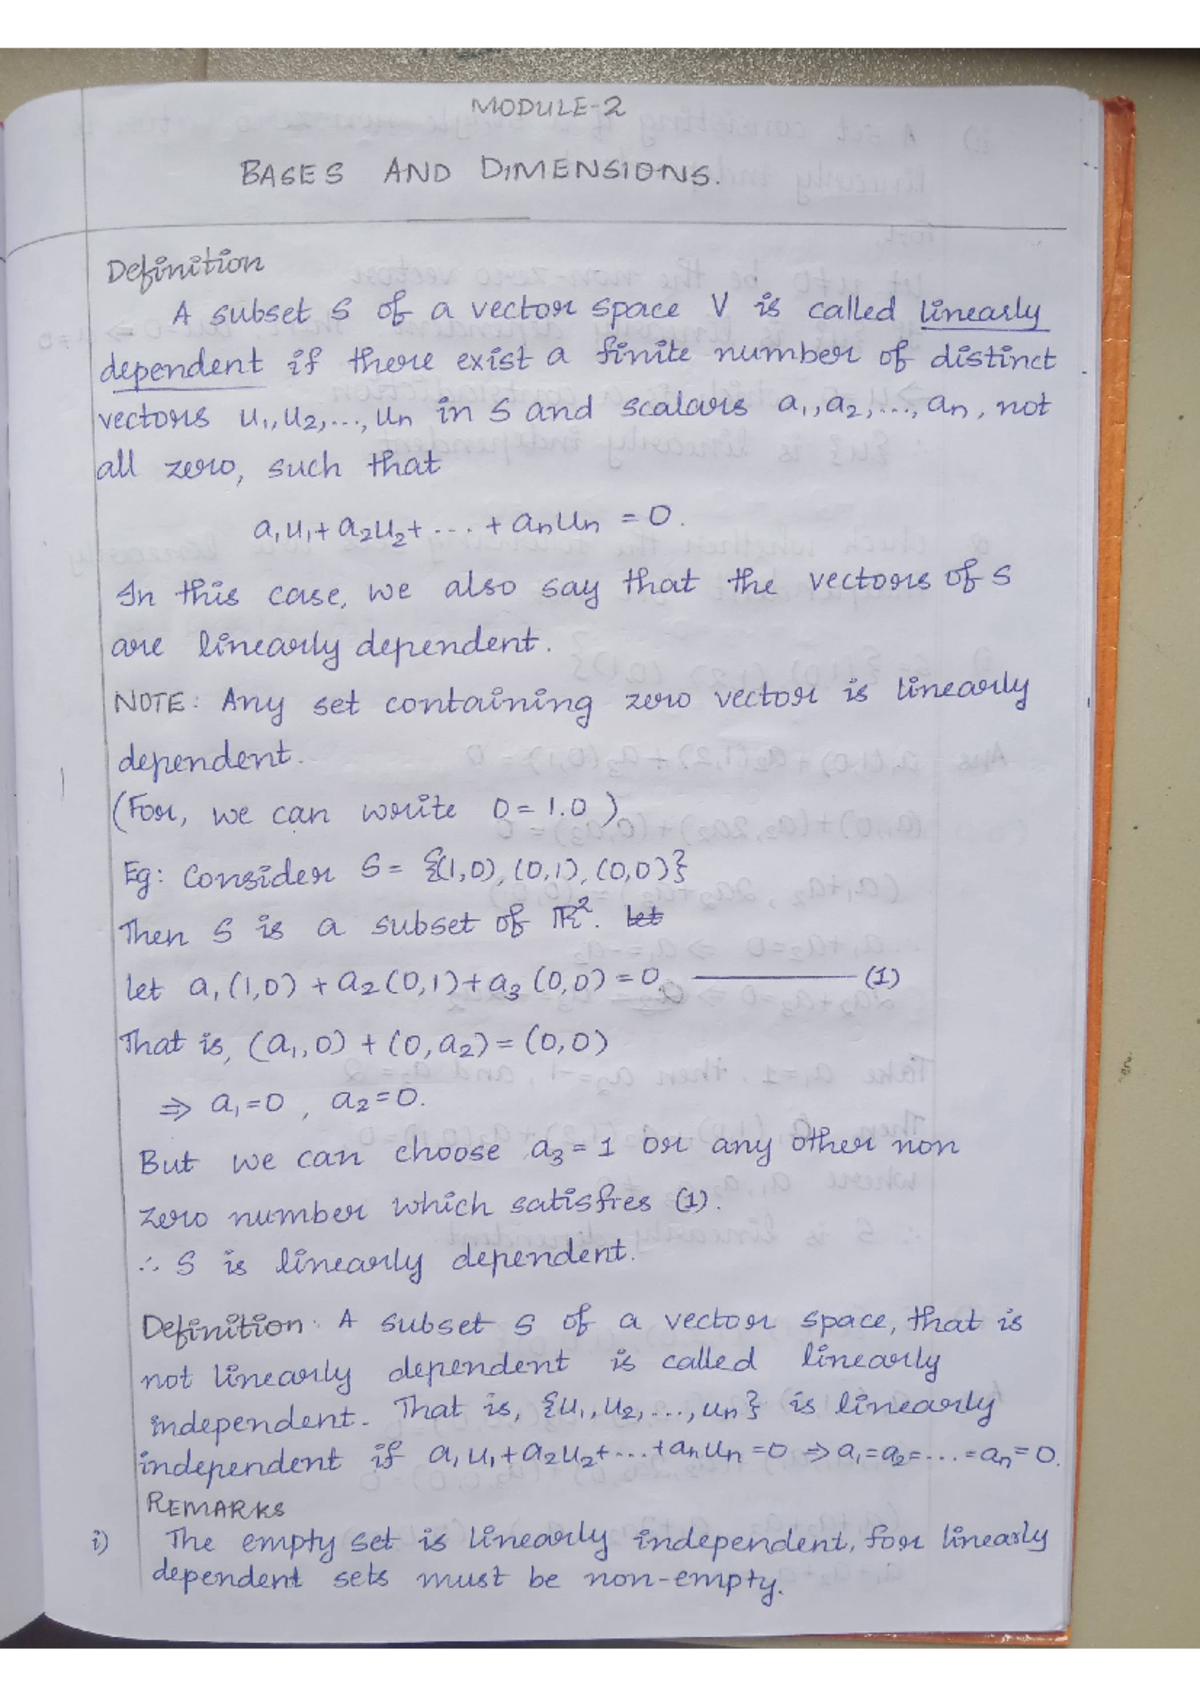 MODULE-2
BASES AND DIMENSIONS.
Definition
A subset S of a vector space V is called linearly
dependent if there exist a finite number of distinct
vectors u₁, u₂, ..., uₙ in S and scalars a₁, a₂, ..., aₙ, not
all zero, such that
a₁u₁ + a₂u₂ + ... + aₙuₙ = 0.
In this case, we also say that the vectors of S
are linearly dependent.
NOTE: Any set containing zero vector is linearly
dependent.
(For, we can write 0 = 1.0)
Eg: Consider S = {(1,0), (0,1), (0,0)}
Then S is a subset of ℝ². let
let a₁(1,0) + a₂(0,1) + a₃(0,0) = 0. ———— (1)
That is, (a₁,0) + (0,a₂) = (0,0)
⇒ a₁=0, a₂=0.
But we can choose a₃ = 1 or any other non
zero number which satisfies (1).
∴ S is linearly dependent.
Definition: A subset S of a vector space, that is
not linearly dependent is called linearly
independent. That is, {u₁, u₂, ..., uₙ} is linearly
independent if a₁u₁ + a₂u₂ + ... + aₙuₙ = 0 ⇒ a₁ = a₂ = ... = aₙ = 0.
REMARKS
i) The empty set is linearly independent, for linearly
dependent sets must be non-empty.